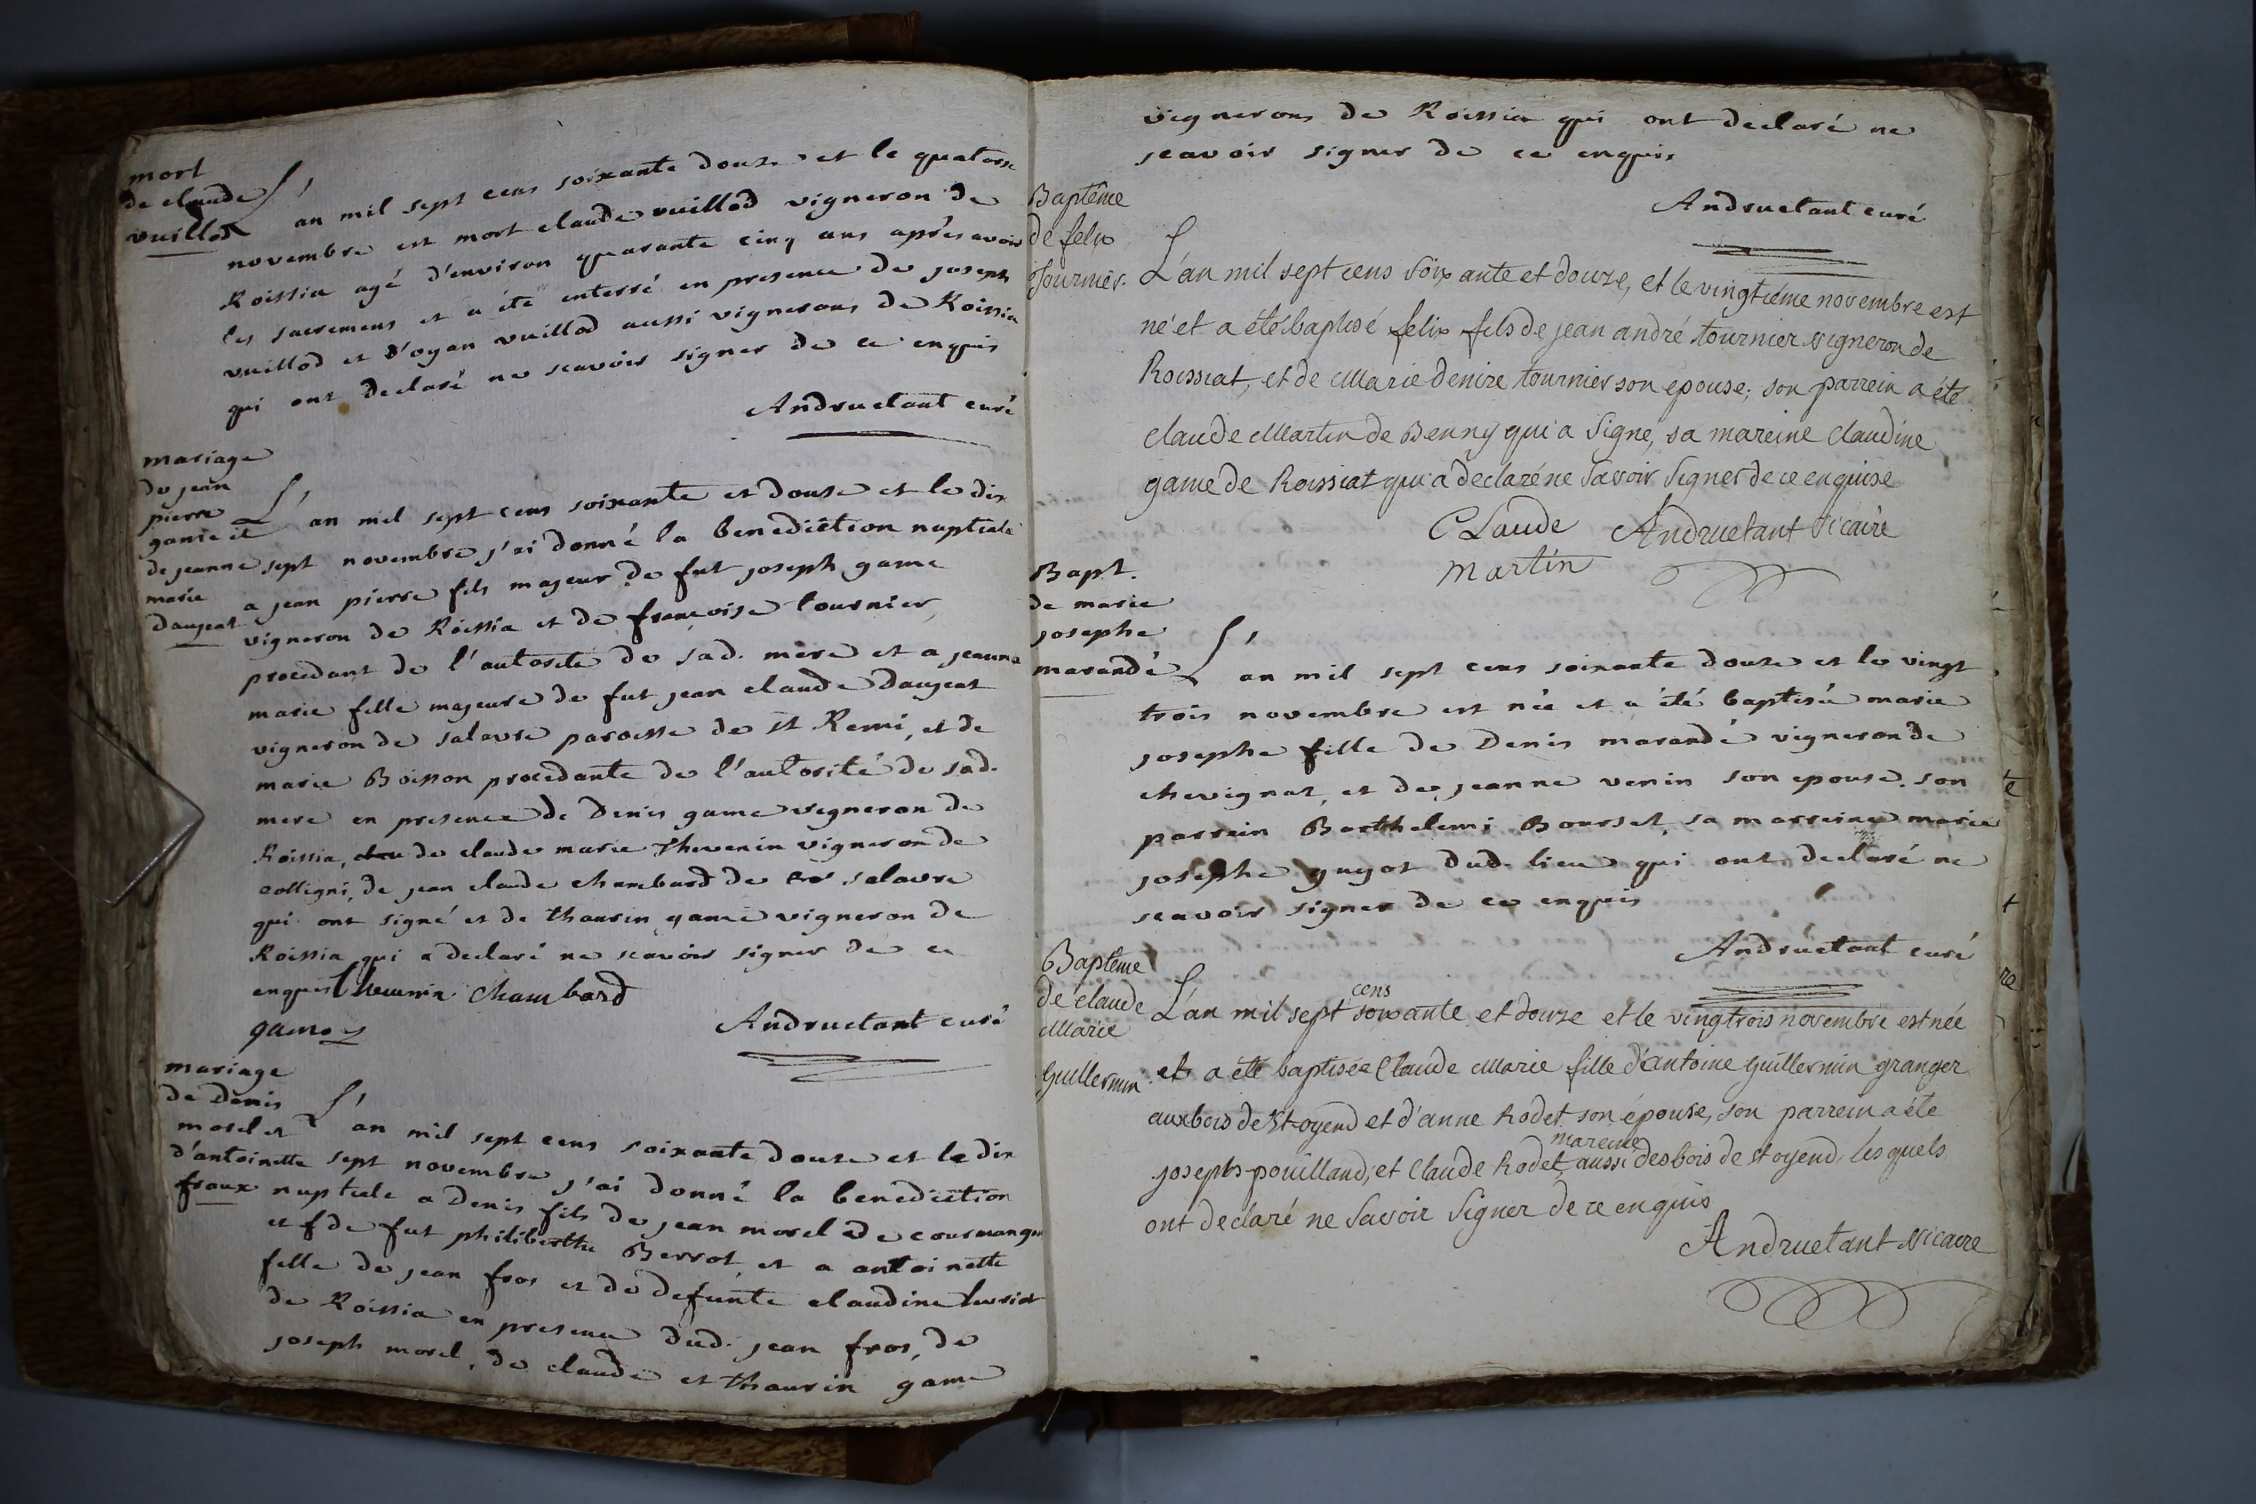 mort
de claude
vuillod
L'an mil sept cens soixante douze et le quatorse
novembre est mort claude vuillod vigneron de
Roissia agé d'environ quarante cinq ans après avoir
les sacremens et a été enterré en presence de joseph
vuillod et d'oyan vuillod aussi vignerons de Roissia
qui ont declaré ne scavoir signer de ce enquis
Andruetant curé
mariage
de jean
pierre
game et
de jeanne
marie
daujeat
L'an mil sept cens soixante et douse et le dix
sept novembre j'ai donné la benediction nuptiale
a jean pierre fils majeur de fut joseph game
vigneron de Roissia et de francoise tournier,
procedant de l'autorité de sad. mère et a jeanne
marie fille majeure de fut jean claude daujeat
vigneron de salavre paroisse de St Remi, et de
marie Boisson procedante de l'autorité de sad.
mere en presence de Denis game vigneron de
Roissia, de claude marie thevenin vigneron de
colligni, de jean claude chambard de salavre
qui ont signé et de thaurin game vigneron de
Roissia qui a declaré ne scavoir signer de ce
enquis thevenin chambard
game
Andruetant curé
mariage
de Denis
morel et
d'antoinette
fraux
L'an mil sept cens soixante douze et le dix
sept novembre j'ai donné la benediction
nuptiale a Denis fils de jean morel de courmangou
et de fut philiberthe Berrot et a antoinette
fille de jean fros et de defunte claudine
de Roissia en presence dud. jean fros, de
joseph morel, de claude et thaurin game
vignerons de Roissia qui ont declaré ne
scavoir signer de ce enquis
Andruetant curé
Baptême
de felix
Tournier.
L'an mil sept cens soixante et douze, et le vingtiéme novembre est
né et a été baptisé felix fils de jean andré tournier vigneron de
Roissiat, et de Marie denize tournier son épouse; son parrein a été
claude Martin de Benny qui a signé, sa mareine claudine
game de Roissiat qui a declaré ne savoir signer de ce enquise
CLaude Andruetant Vicaire
martin
Bapt.
de marie
josephe
marandé
L'an mil sept cens soixante douze et le vingt
trois novembre est née et a été baptisée marie
josephe fille de Denis marandé vigneron de
chevignat, et de jeanne venin son epouse. son
parrein Barthelemi Bourset, sa marreine marie
josephe guyot dud. lieu qui ont declaré ne
scavoir signer de ce enquis
Andruetant curé
Baptême
de claude
Marie
Guillermin
L'an mil sept cens soixante et douze et le vingtrois novembre est née
et a été baptisée Claude Marie fille d'antoine Guillermin granger
aux bois de St oyend et d'anne Rodet son épouse, son parrein a été
joseph pouilland, et Claude Rodet mareine aussi des bois de st oyend. lesquels
ont declaré ne savoir signer de ce enquis
Andruetant Vicaire